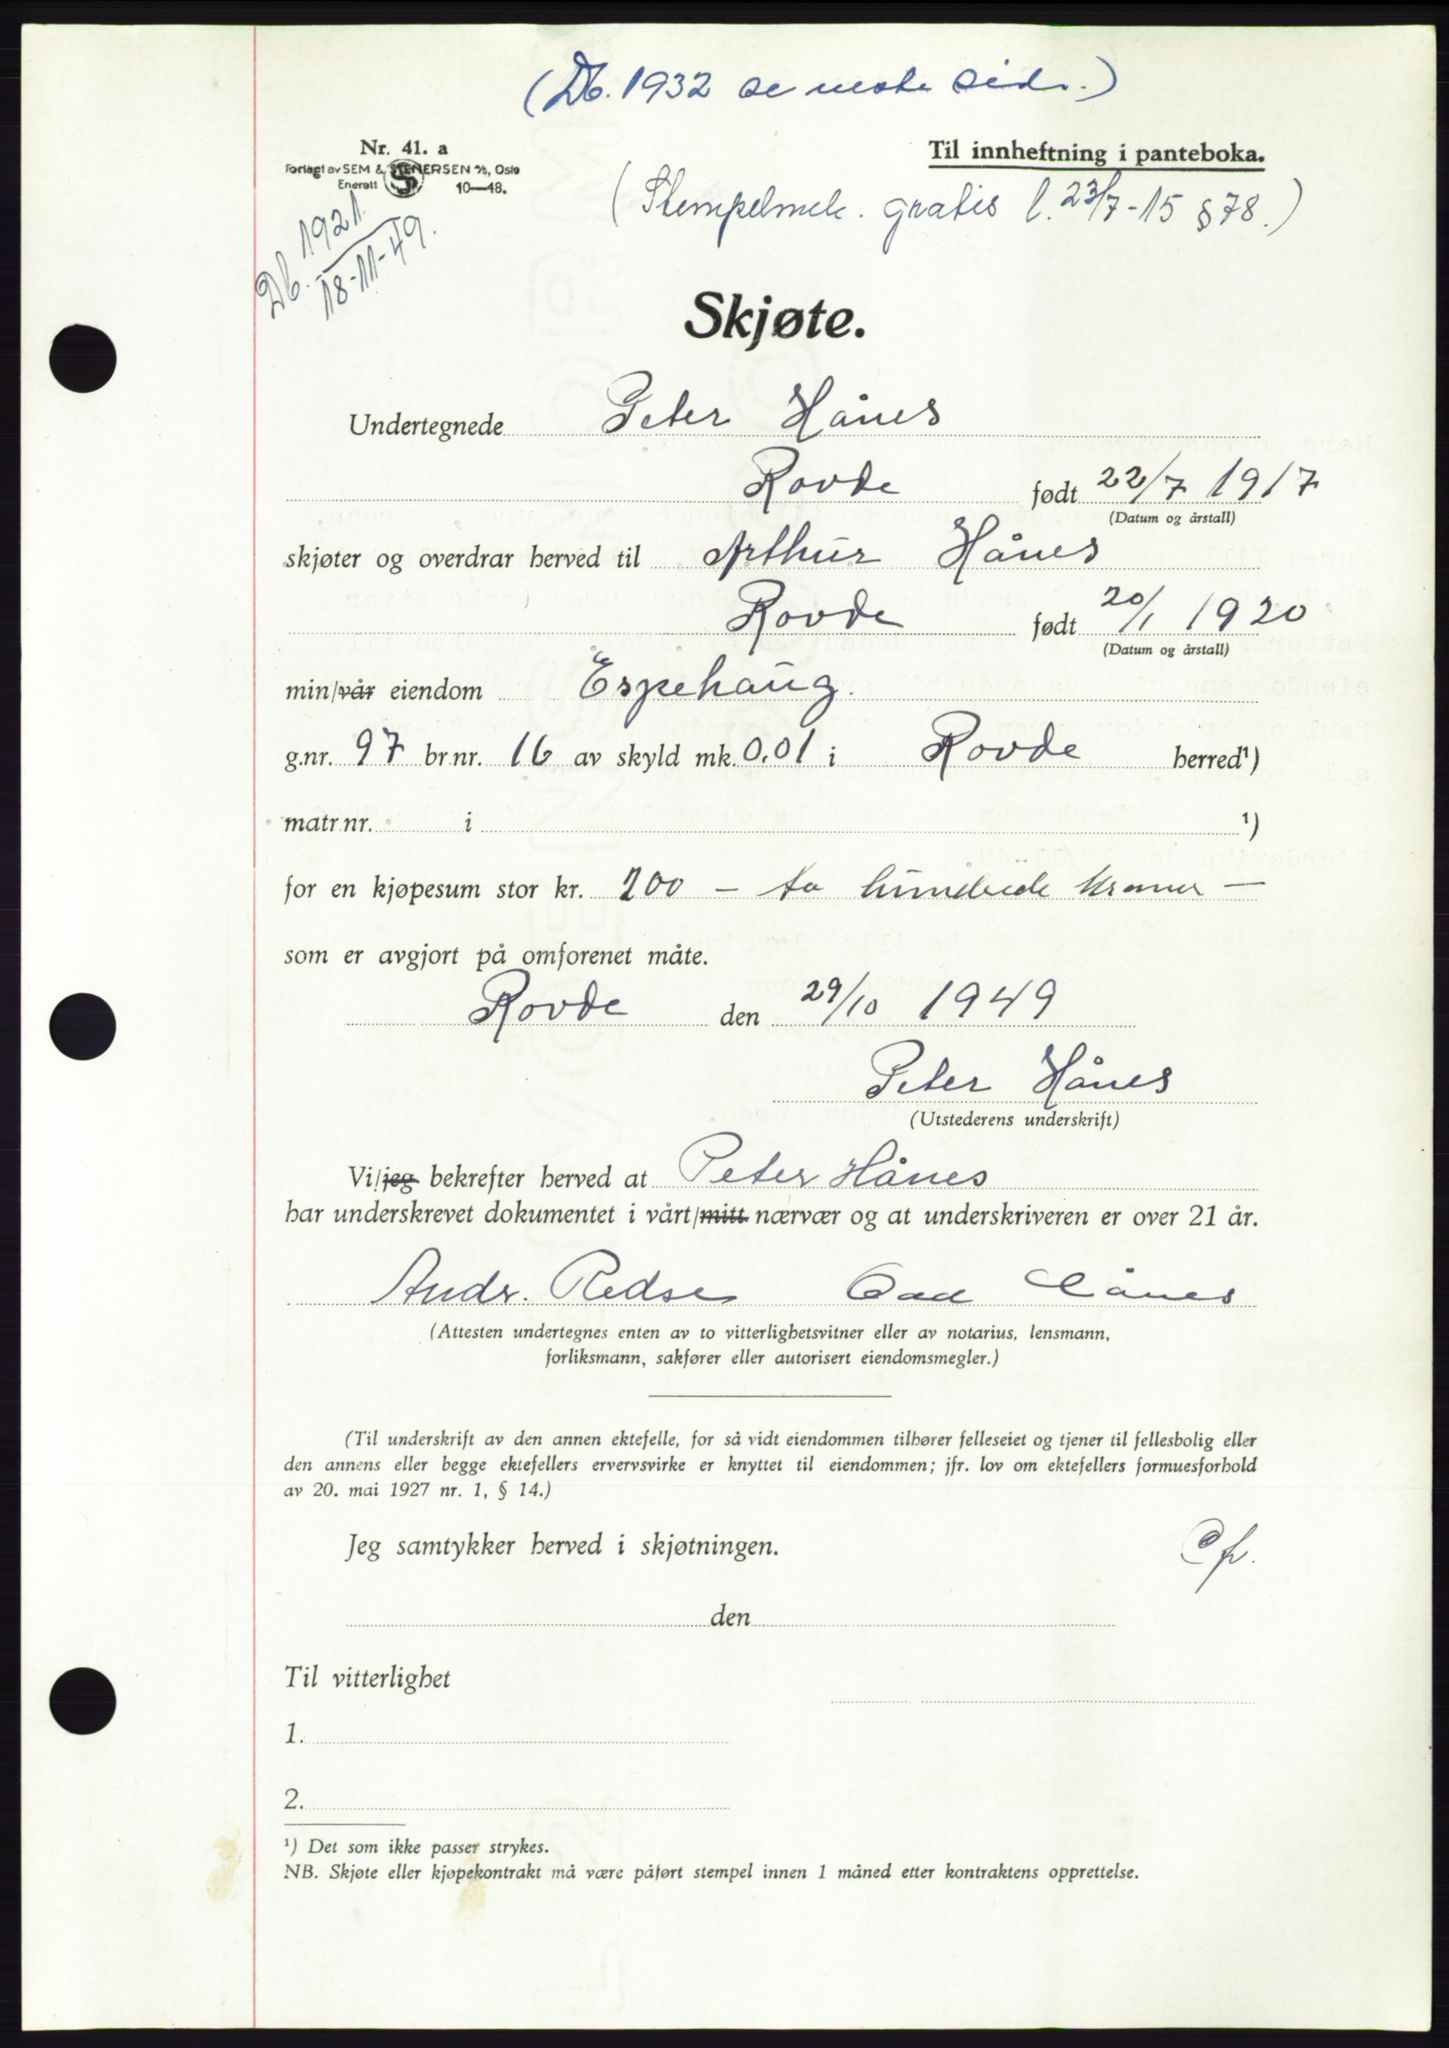 (Db. 1932 se neste side.)
Nr. 41. a
Forlagt av SEM & STENERSEN A/S, Oslo
Enerett 10—48.
Til innheftning i panteboka.
(Stempelmrk. gratis l. 23/7-15 § 78.)
Db. 1921.
18-11-49.
Skjøte.
Undertegnede Peter Hånes
Rovde født 22/7 1917
(Datum og årstall)
skjøter og overdrar herved til Arthur Hånes
Rovde født 20/1 1920
(Datum og årstall)
min/vår eiendom Espehaug.
g.nr. 97 br.nr. 16 av skyld mk. 0,01 i Rovde herred¹)
matr.nr. i ¹)
for en kjøpesum stor kr. 200 — to hundrede kroner —
som er avgjort på omforenet måte.
Rovde den 29/10 1949
Peter Hånes
(Utstederens underskrift)
Vi/jeg bekrefter herved at Peter Hånes
har underskrevet dokumentet i vårt/mitt nærvær og at underskriveren er over 21 år.
Andr. Hånes
(Attesten undertegnes enten av to vitterlighetsvitner eller av notarius, lensmann,
forliksmann, sakfører eller autorisert eiendomsmegler.)
(Til underskrift av den annen ektefelle, for så vidt eiendommen tilhører felleseiet og tjener til fellesbolig eller
den annens eller begge ektefellers ervervsvirke er knyttet til eiendommen; jfr. lov om ektefellers formuesforhold
av 20. mai 1927 nr. 1, § 14.)
Jeg samtykker herved i skjøtningen.
den
Til vitterlighet
1.
2.
¹) Det som ikke passer strykes.
NB. Skjøte eller kjøpekontrakt må være påført stempel innen 1 måned etter kontraktens opprettelse.